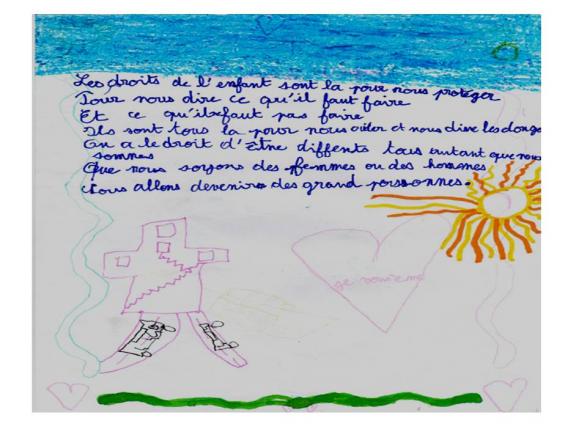 Les droits de l'enfant sont la pour nous protéger
Pour nous dire ce qu'il faut faire
Et ce qu'il faut pas faire
Ils sont tous la pour nous aider et nous dire les dange
On a le droit d'être diffents tous autant que nous
sommes
Que nous soyons des femmes ou des hommes
Nous allons devenir des grand personnes.
je